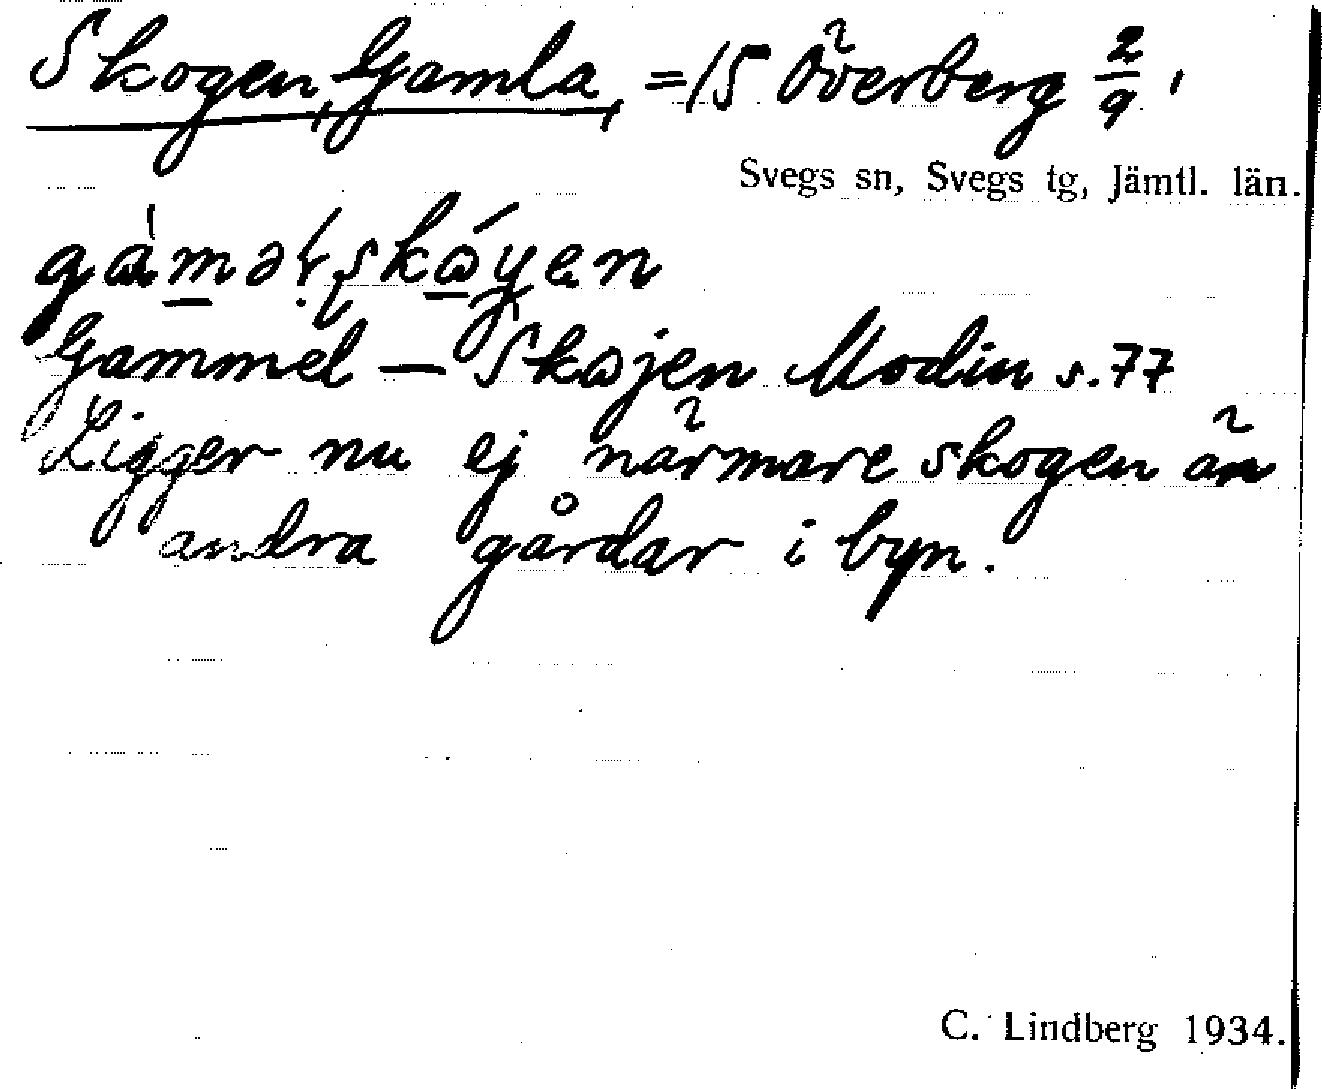 Skogen, Gamla, = 15 Överberg 2/9,
Svegs sn, Svegs tg, Jämtl. län.
Gammel – Skojen Modin s. 77
Ligger nu ej närmare skogen än
andra gårdar i byn.
C. Lindberg 1934.